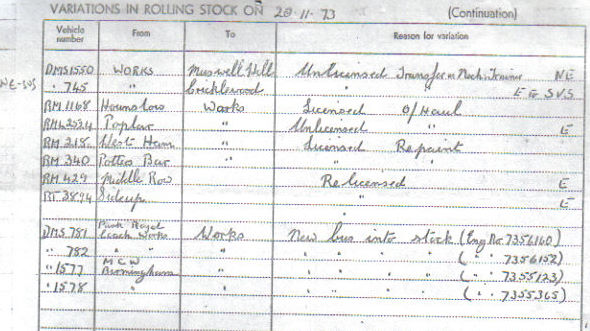 VARIATIONS IN ROLLING STOCK ON 20·11·73 (Continuation)
Vehicle number From To Reason for variation
DMS1550 WORKS Muswell Hill Unlicensed Transfer as Mech. Trainer NE
NE-SVS " 745 " Cricklewood " " E E SVS
RM 1168 Hounslow Works Licensed O/Haul
Poplar " Unlicensed " E
RM 218 West Ham " Licensed Repaint
RM 340 Potters Bar " " "
RM 429 Middle Row Relicensed E
RT 3894 Sidcup " E
DMS 781 Park Royal Coach Works Works New bus into stock (Eng No. 7356160)
" 782 " " " " " " " (" " 7356152)
" 1577 MCW Birmingham " " " " " (" " 7355123)
" 1578 " " " " " " (" " 7355365)